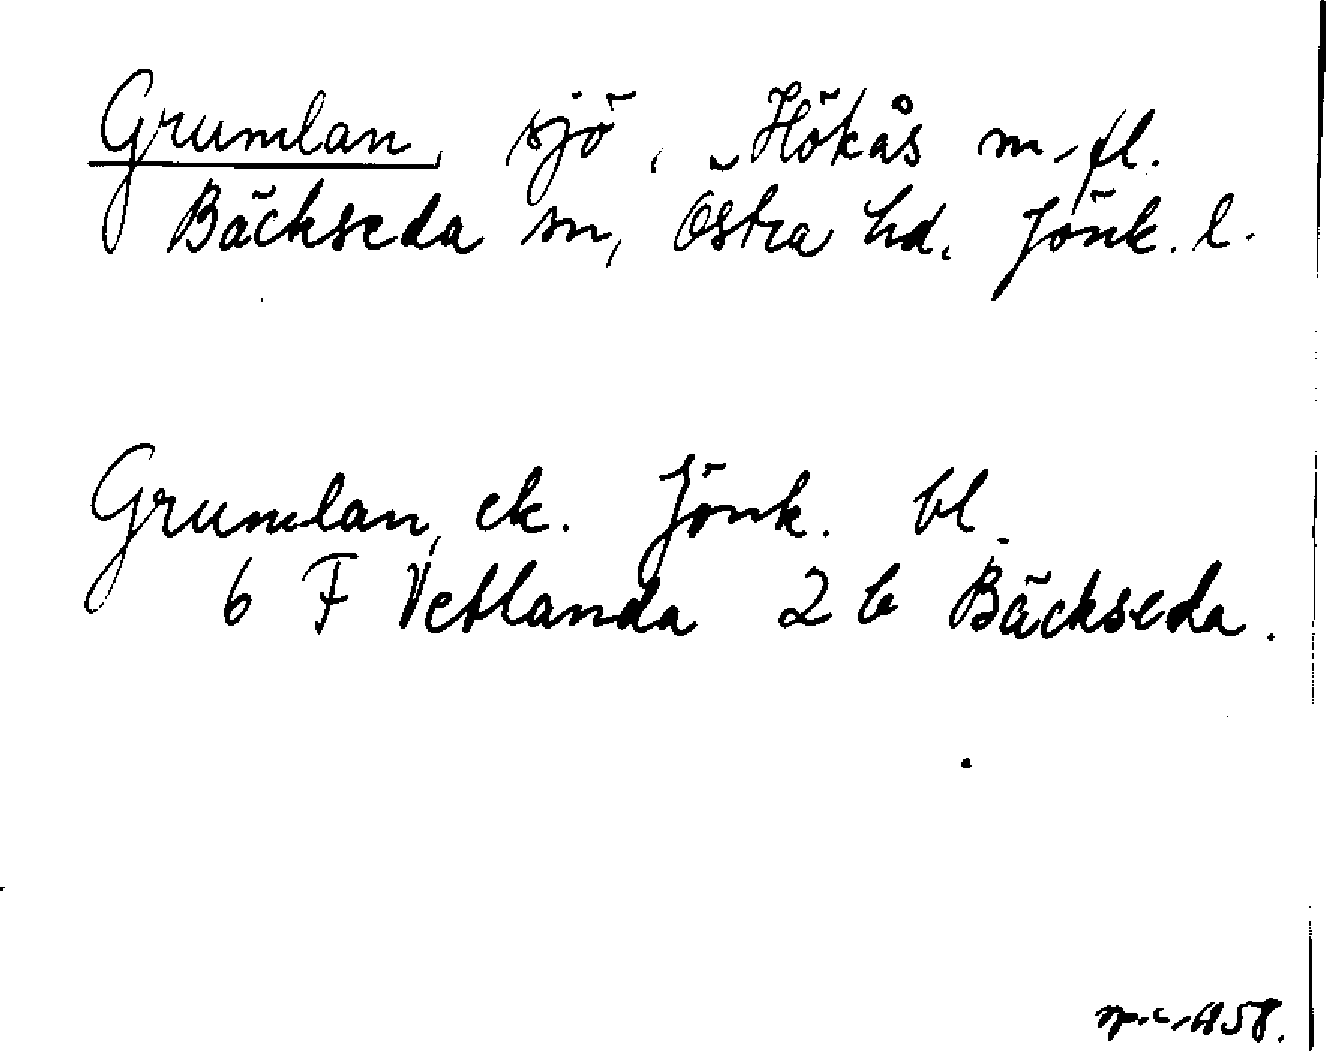 Grumlan, sjö, Hökås m fl.
Bäckseda sn, Östra hd. Jönk. l.
Grumlan, ek. Jönk. bl.
6 F Vetlanda 2 b Bäckseda.